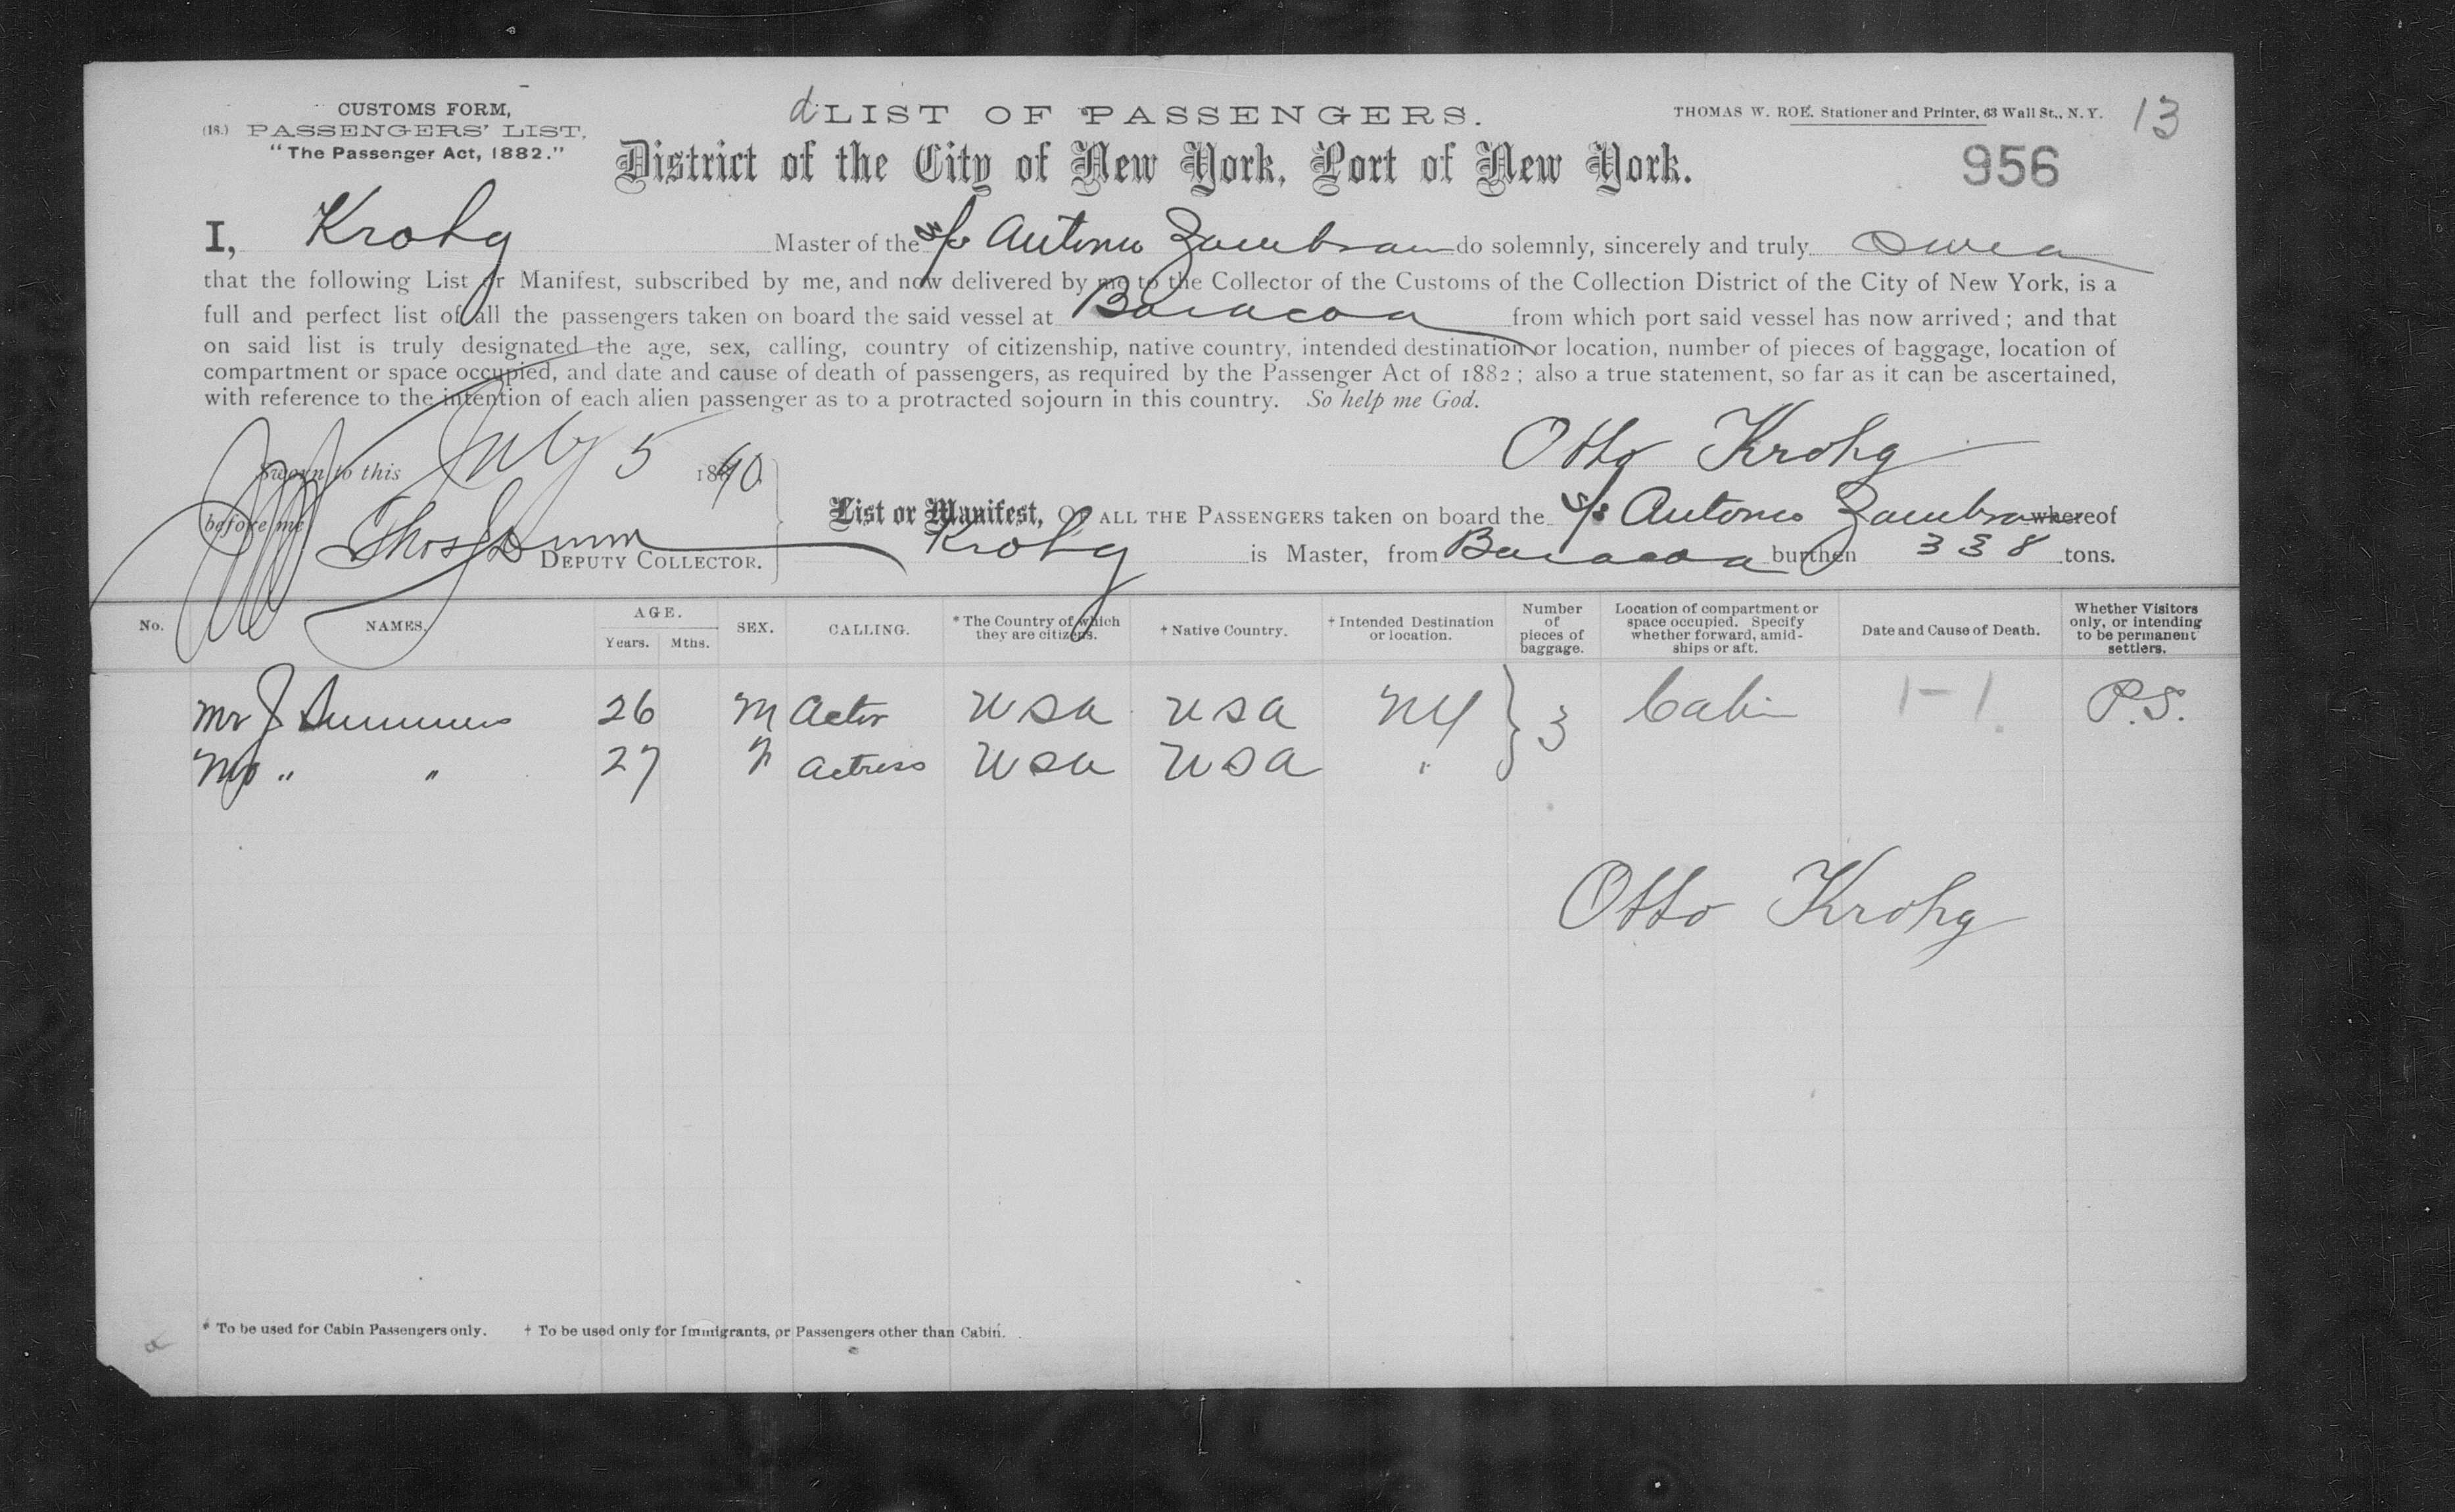 CUSTOMS FORM,
(18.) PASSENGERS' LIST,
"The Passenger Act, 1882."
d LIST OF PASSENGERS.
THOMAS W. ROE. Stationer and Printer, 63 Wall St., N. Y.
13
District of the City of New York, Port of New York.
956
I, Krohg Master of the S/s Antonio Zambrana do solemnly, sincerely and truly swear
that the following List or Manifest, subscribed by me, and now delivered by me to the Collector of the Customs of the Collection District of the City of New York, is a
full and perfect list of all the passengers taken on board the said vessel at Baracoa from which port said vessel has now arrived; and that
on said list is truly designated the age, sex, calling, country of citizenship, native country, intended destination or location, number of pieces of baggage, location of
compartment or space occupied, and date and cause of death of passengers, as required by the Passenger Act of 1882; also a true statement, so far as it can be ascertained,
with reference to the intention of each alien passenger as to a protracted sojourn in this country. So help me God.
Sworn to this July 5 1890
Otto Krohg
before me Thos Dunn
DEPUTY COLLECTOR.
List or Manifest, OF ALL THE PASSENGERS taken on board the S/s Antonio Zambrana whereof
Krohg is Master, from Baracoa burthen 338 tons.
No. NAMES. AGE. Years. Mths. SEX. CALLING. * The Country of which they are citizens. † Native Country. † Intended Destination or location. Number of pieces of baggage. Location of compartment or space occupied. Specify whether forward, amidships or aft. Date and Cause of Death. Whether Visitors only, or intending to be permanent settlers.
Mr J 26 M Actor USA USA NY } 3 Cabin 1-1 P.S.
Mrs " " 27 F Actress USA USA "
Otto Krohg
* To be used for Cabin Passengers only. † To be used only for Immigrants, or Passengers other than Cabin.